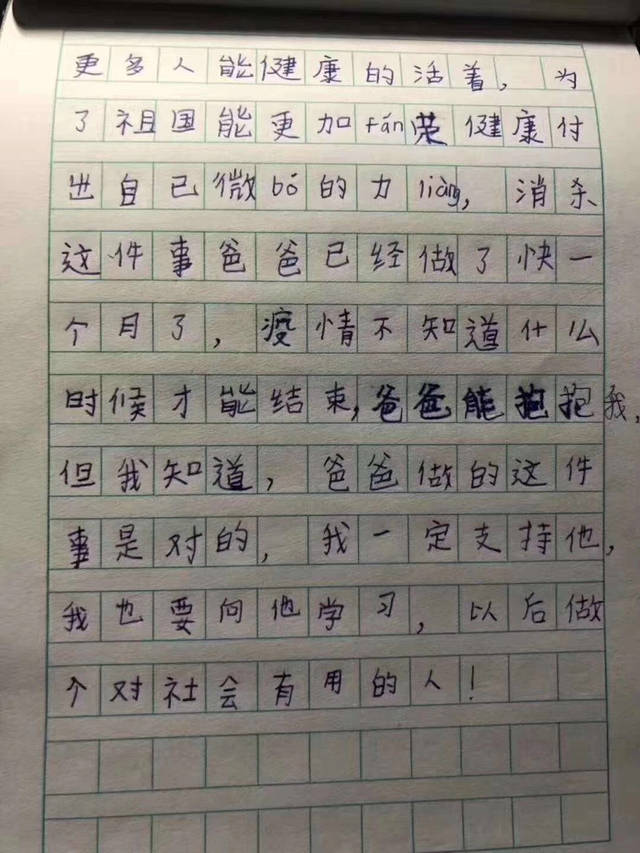 更多人能健康的活着，为
了祖国能更加fán荣健康付
出自已微bó的力liàng，消杀
这件事爸爸已经做了快一
个月了，疫情不知道什么
时候才能结束，爸爸能抱抱我，
但我知道，爸爸做的这件
事是对的，我一定支持他，
我也要向他学习，以后做
个对社会有用的人！